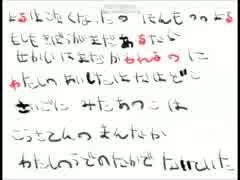 よるはこなくなった
もしもきぼうがまだあるなら
せかいはまだかわれるのに
わたしのあいしたひとはどこ
さいごに みたあのこは
こうさてんのまんなか
わたしのうでのなかで ないていた